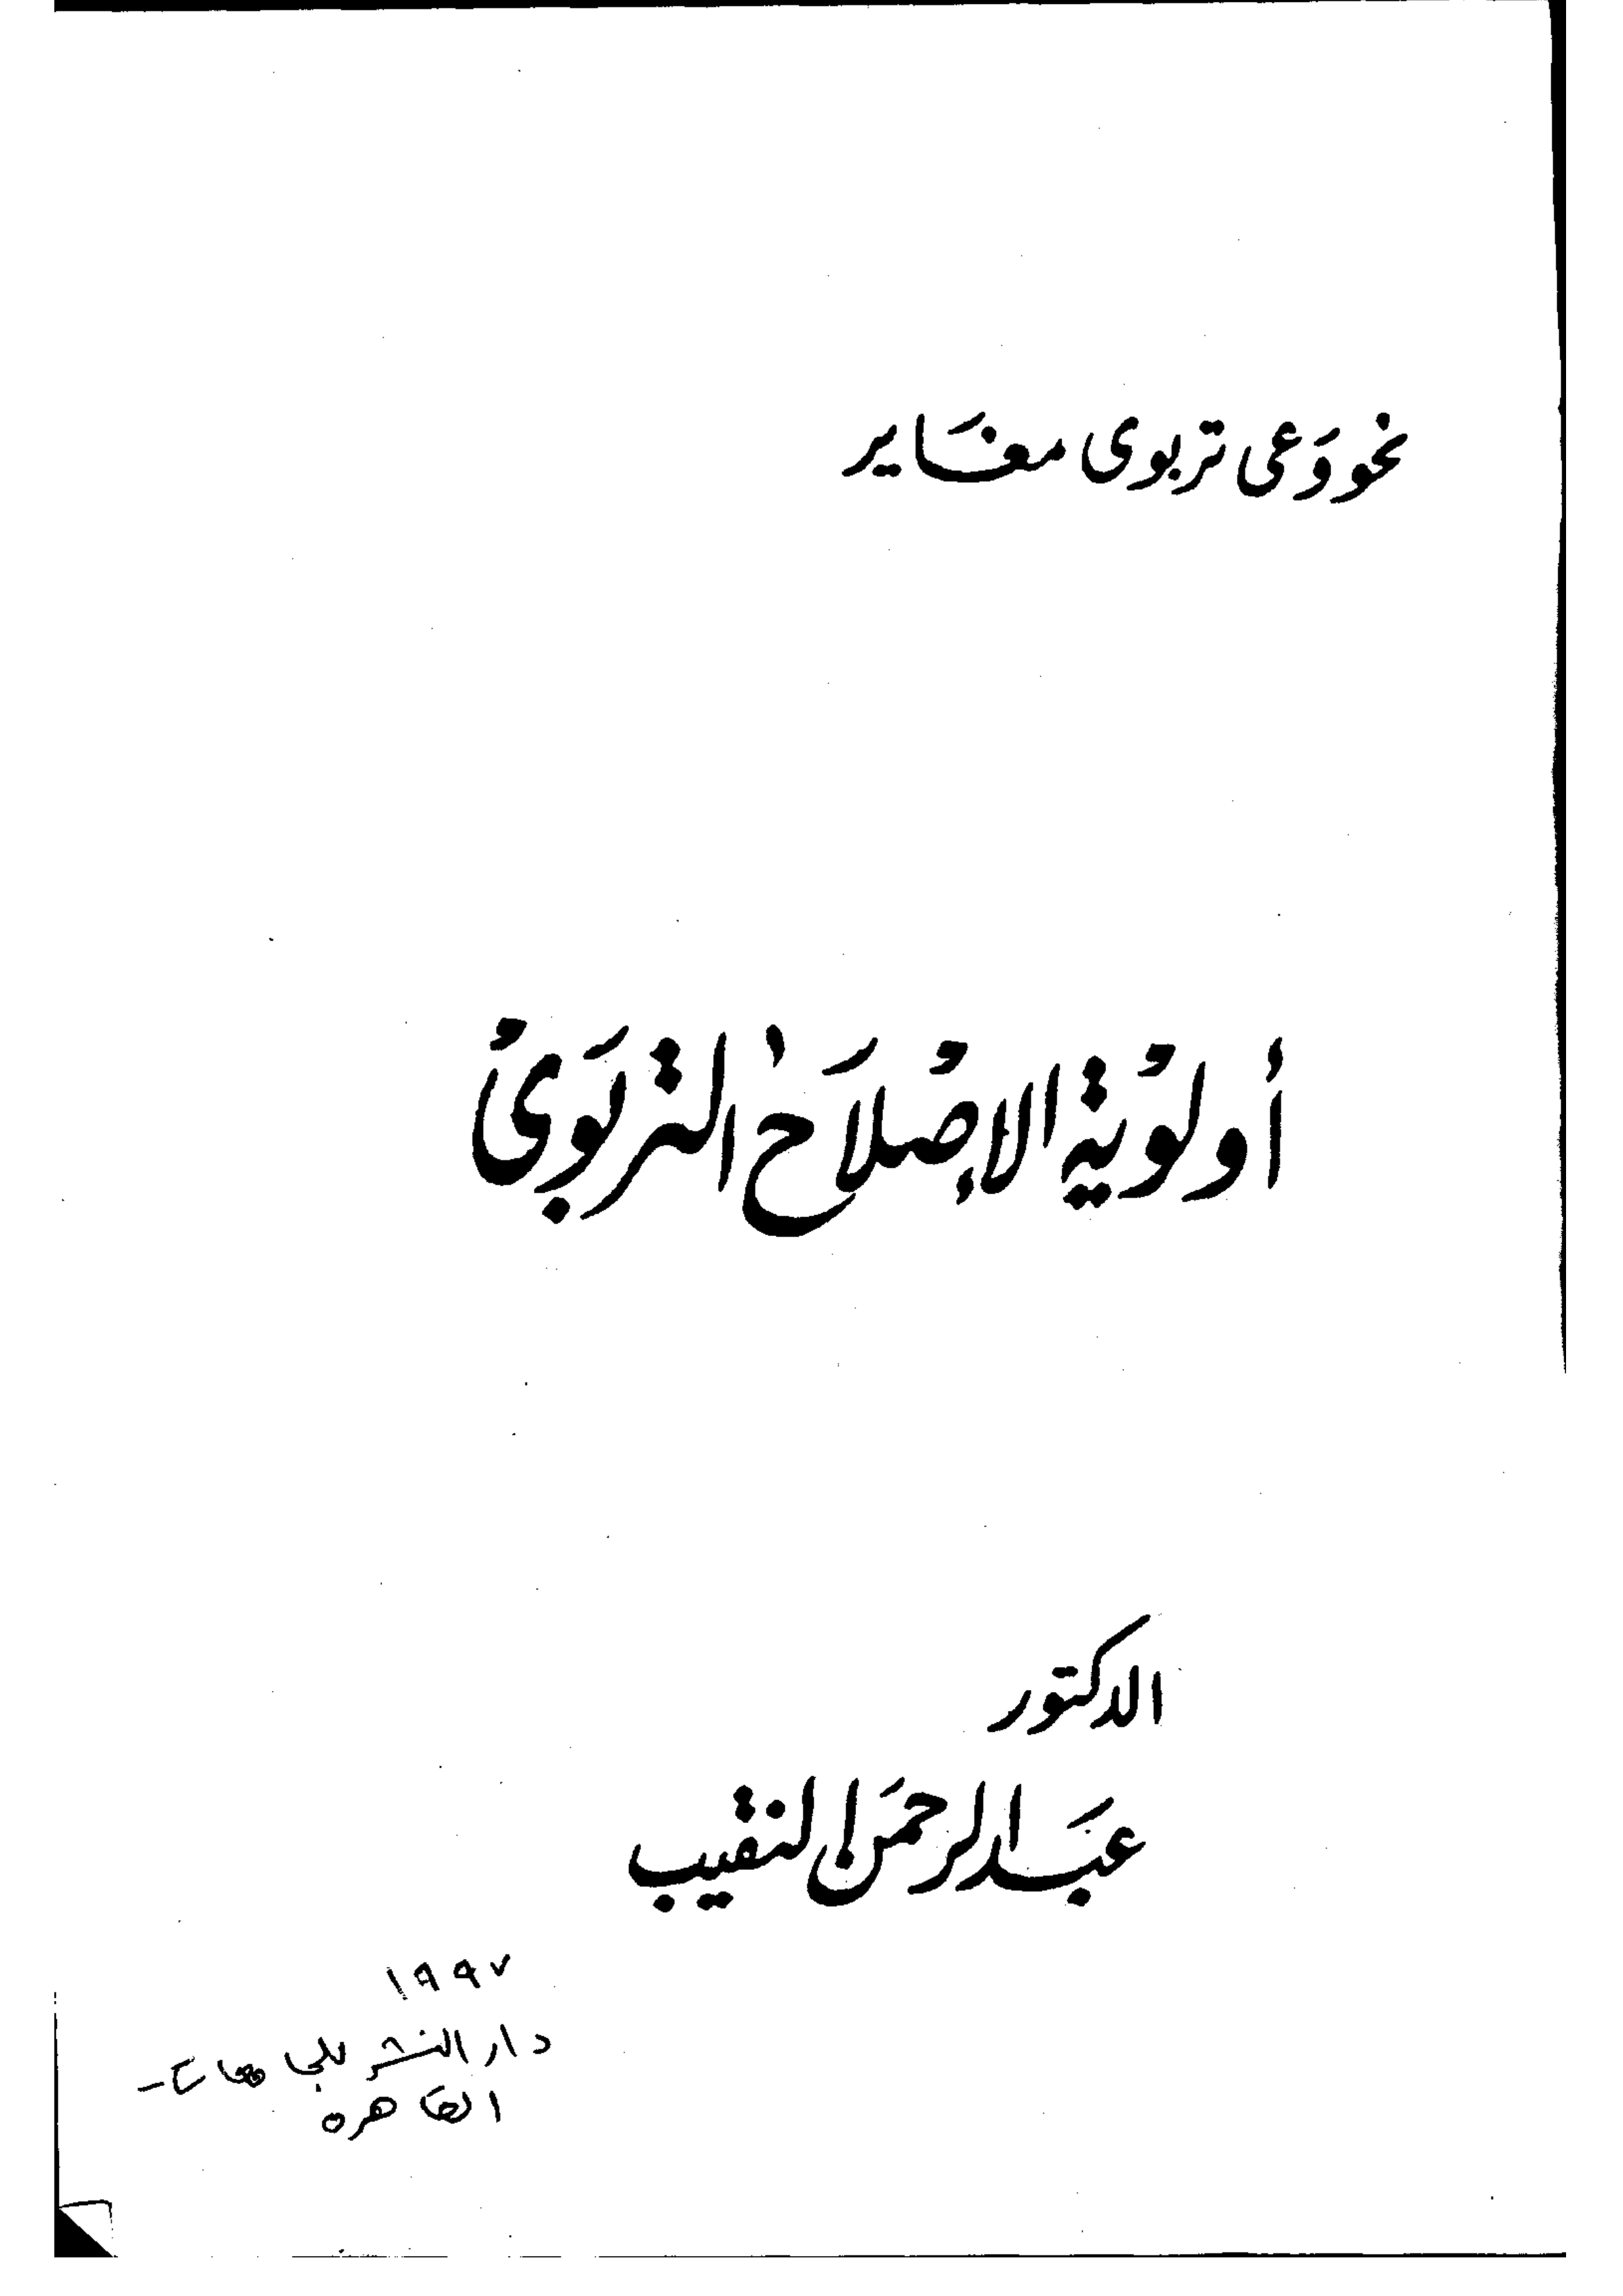 نحو وَعى تربوى مغَاير
أولوُية الإصُلاَح التربَوىُ
الدكتور
عبَد الرحمَن النقيب
١٩٩٧
دار النشر للجامعات -
القاهره